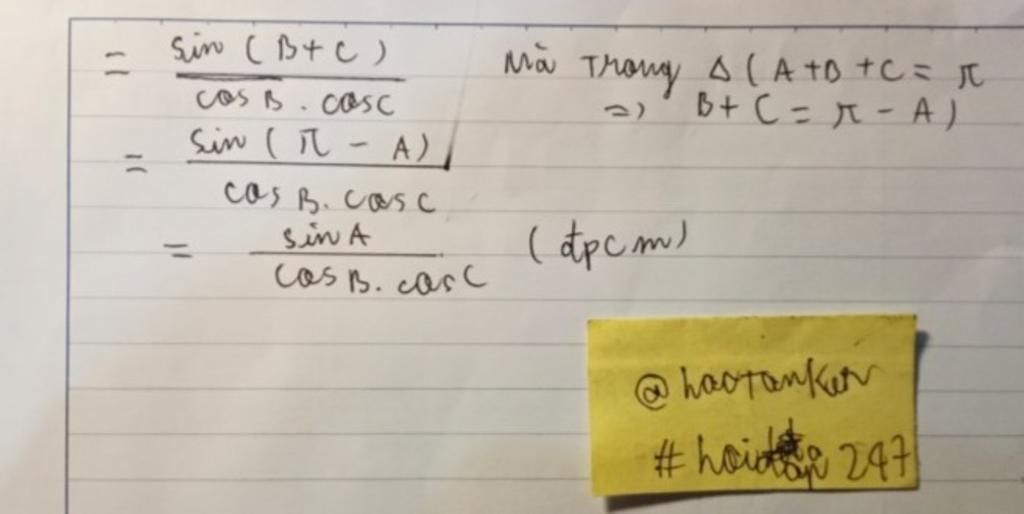 = sin (B+C) / cosB . cosC Mà Trong Δ (A+B+C = π
=> B+C = π - A)
= sin (π - A) / cosB. cosC
= sinA / cosB. cosC (đpcm)
@haotanker
# hoidap 247